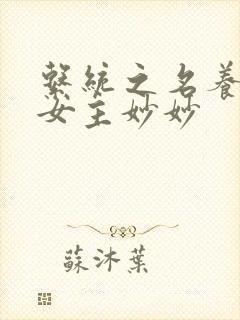 繫統之名養
女主妙妙
蘇沐葉